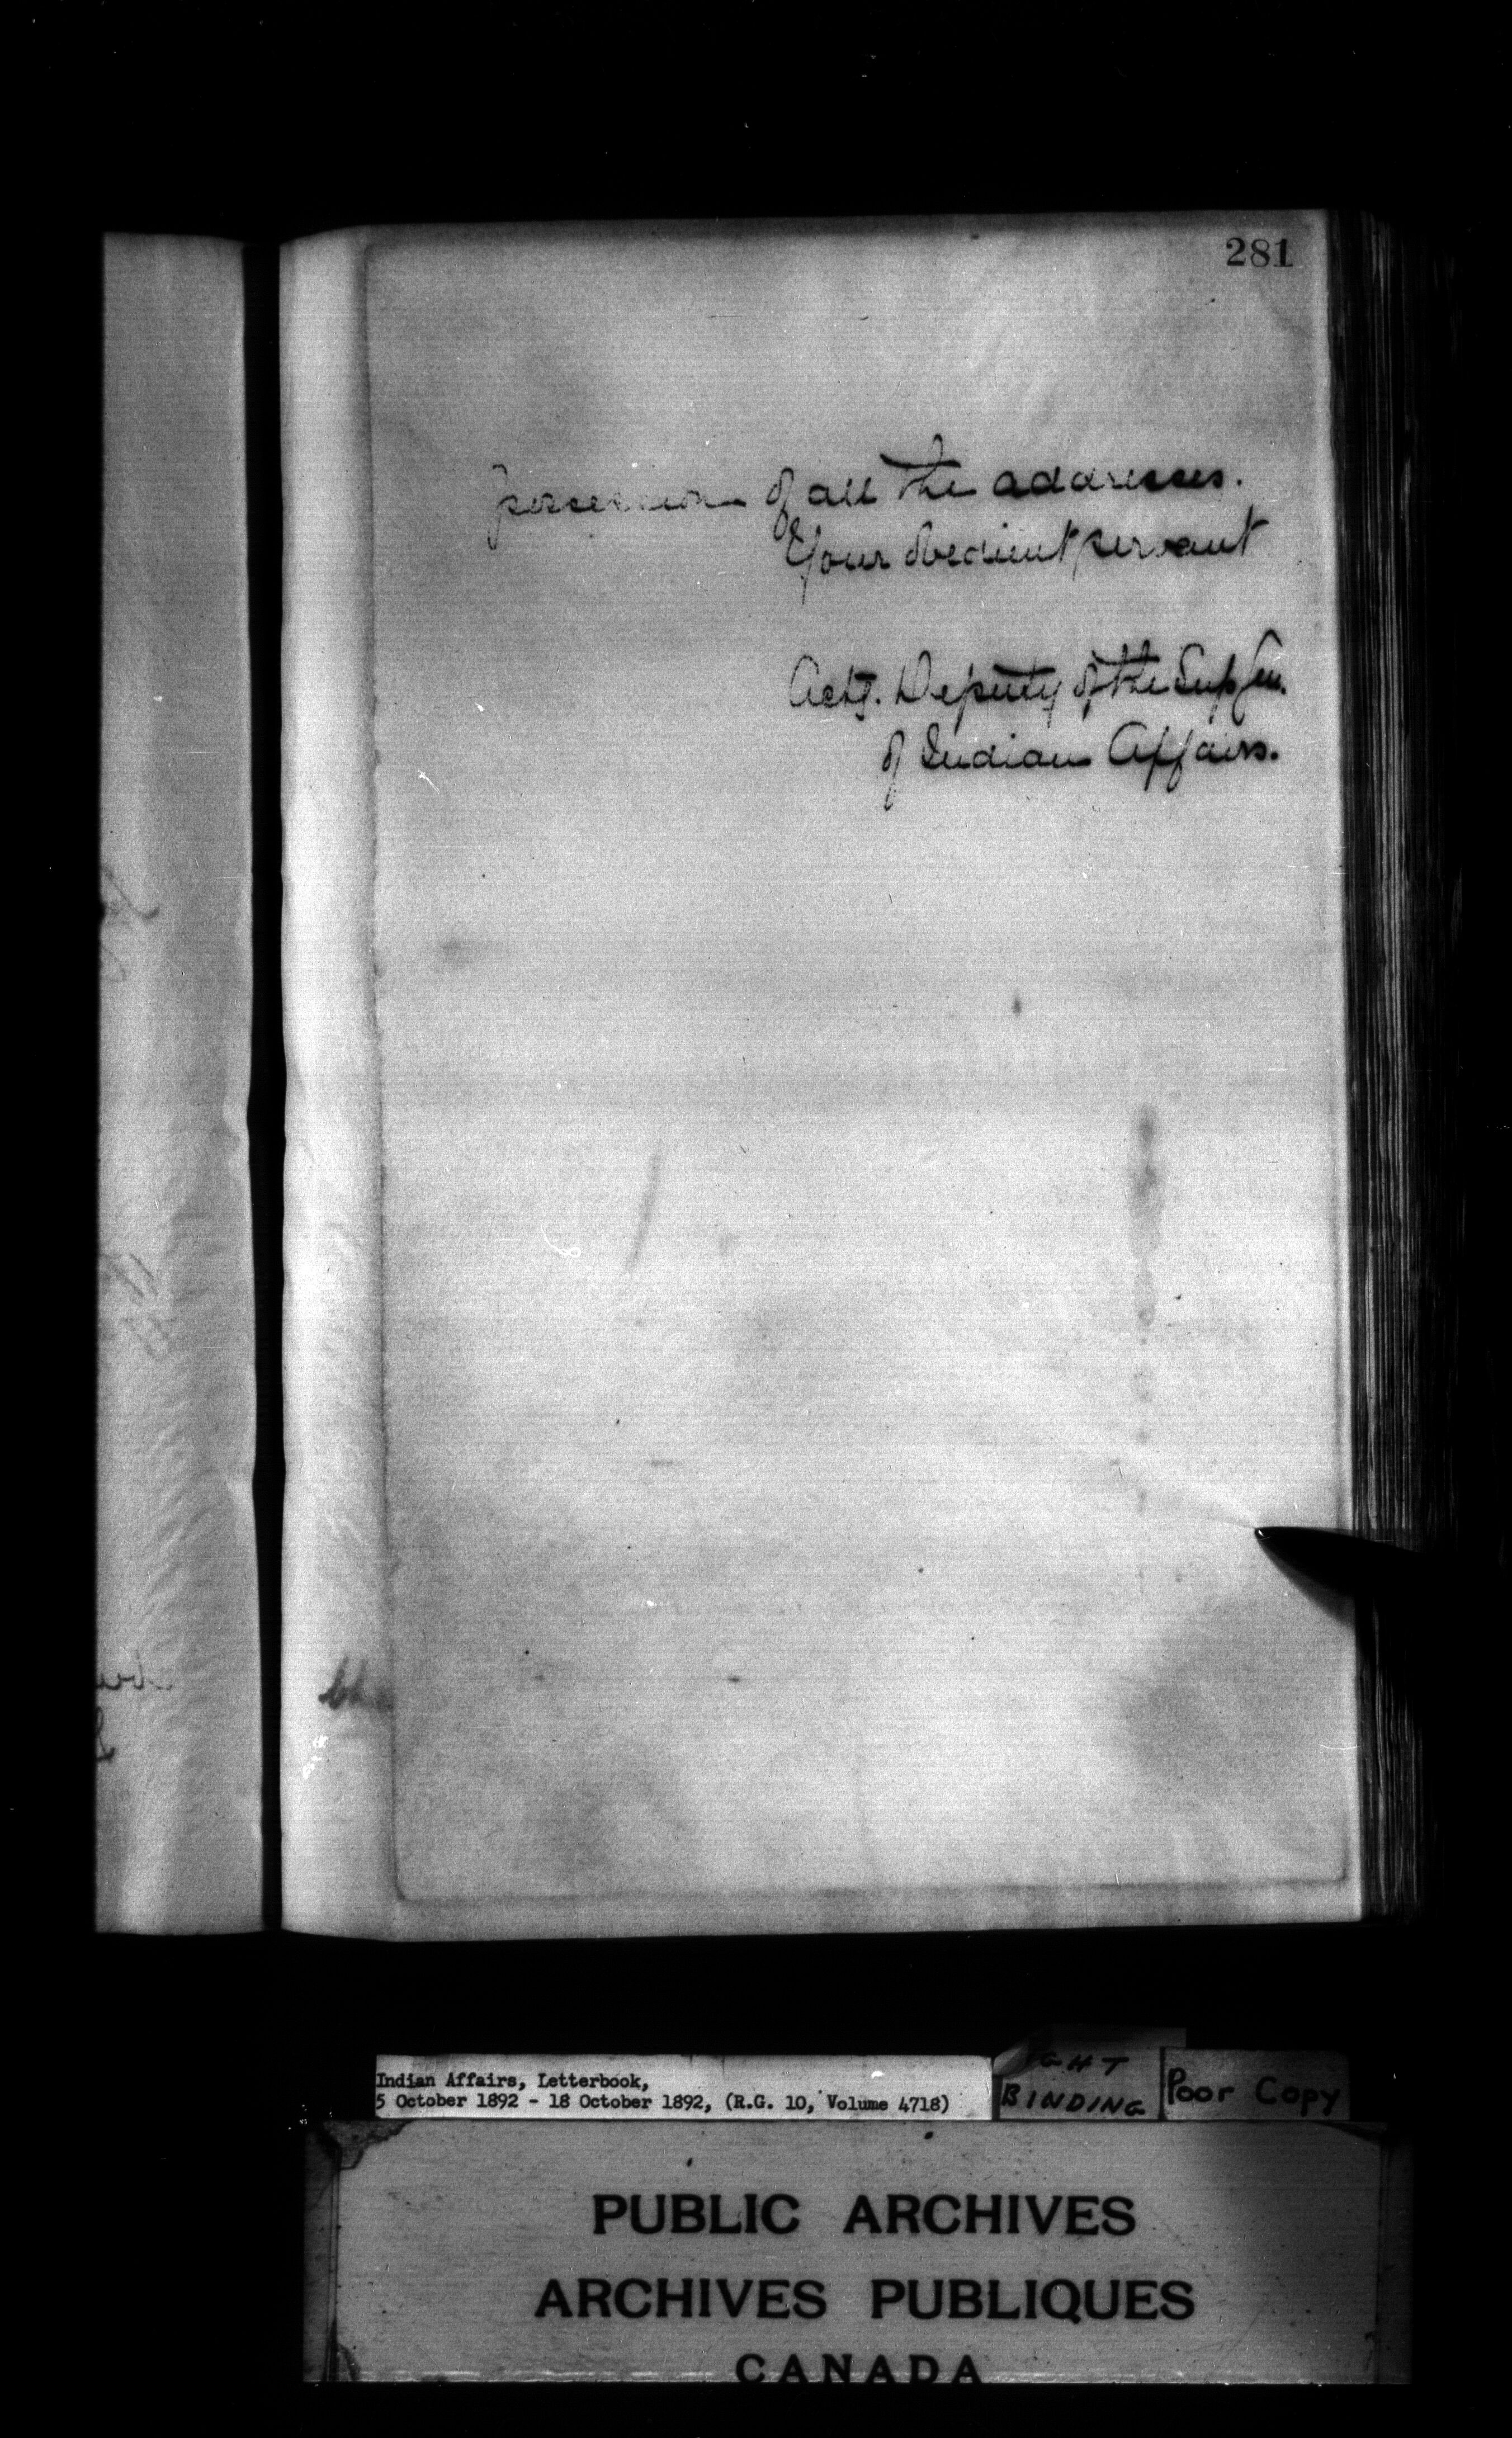 281
possession of all the addresses.
Your obedient servant
Actg. Deputy of the Sup Gen.
of Indian Affairs.
Indian Affairs, Letterbook,
5 October 1892 - 18 October 1892, (R.G. 10, Volume 4718)
BINDING
Poor Copy
PUBLIC ARCHIVES
ARCHIVES PUBLIQUES
CANADA